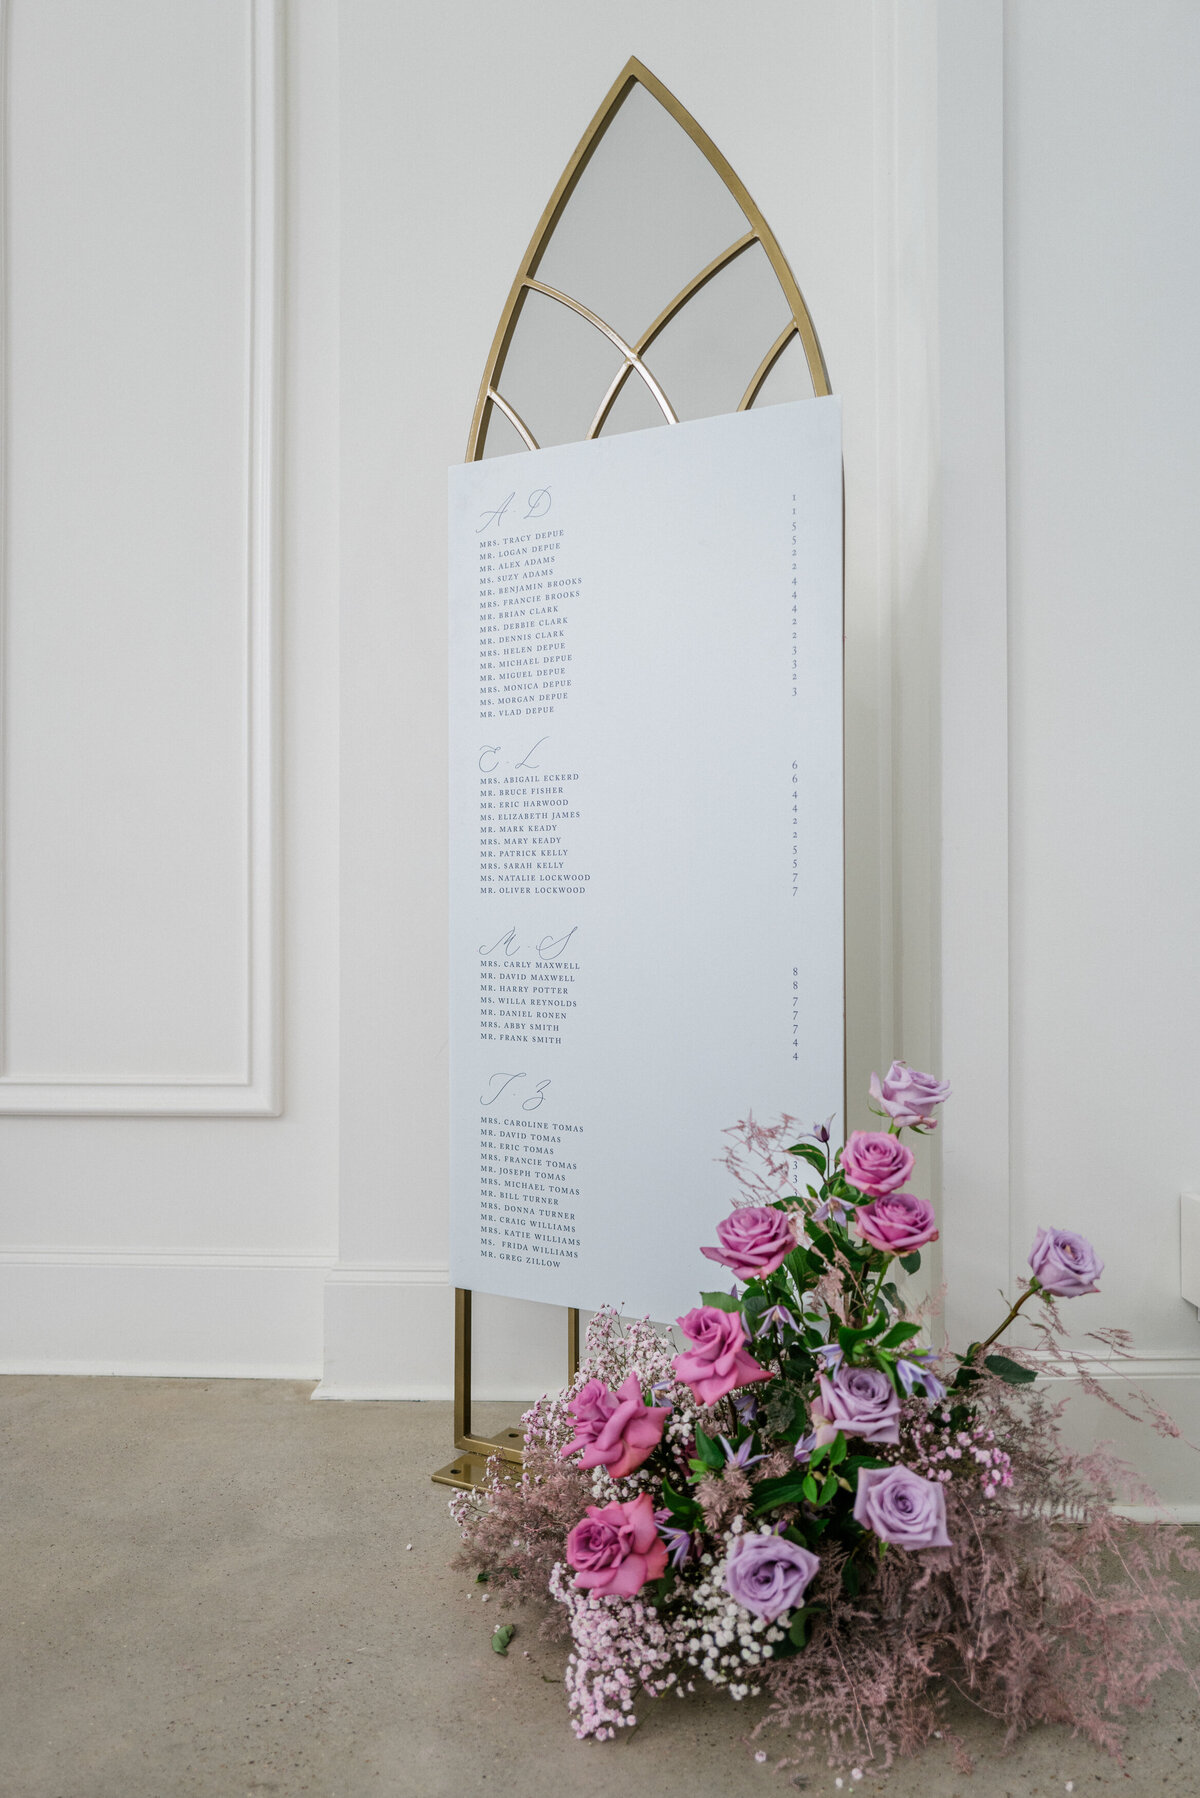 A - D
MRS. TRACY DEPUE 1
MR. LOGAN DEPUE 1
MR. ALEX ADAMS 5
MS. SUZY ADAMS 5
MR. BENJAMIN BROOKS 2
MRS. FRANCIE BROOKS 2
MR. BRIAN CLARK 4
MRS. DEBBIE CLARK 4
MR. DENNIS CLARK 4
MRS. HELEN DEPUE 2
MR. MICHAEL DEPUE 2
MR. MIGUEL DEPUE 3
MRS. MONICA DEPUE 3
MS. MORGAN DEPUE 2
MR. VLAD DEPUE 3
E - L
MRS. ABIGAIL ECKERD 6
MR. BRUCE FISHER 6
MR. ERIC HARWOOD 4
MS. ELIZABETH JAMES 4
MR. MARK KEADY 2
MRS. MARY KEADY 2
MR. PATRICK KELLY 5
MRS. SARAH KELLY 5
MS. NATALIE LOCKWOOD 7
MR. OLIVER LOCKWOOD 7
M - S
MRS. CARLY MAXWELL 8
MR. DAVID MAXWELL 8
MR. HARRY POTTER 7
MS. WILLA REYNOLDS 7
MR. DANIEL RONEN 7
MRS. ABBY SMITH 4
MR. FRANK SMITH 4
T - Z
MRS. CAROLINE TOMAS
MR. DAVID TOMAS
MR. ERIC TOMAS 3
MRS. FRANCIE TOMAS 3
MR. JOSEPH TOMAS
MRS. MICHAEL TOMAS
MR. BILL TURNER
MRS. DONNA TURNER
MR. CRAIG WILLIAMS
MRS. KATIE WILLIAMS
MS. FRIDA WILLIAMS
MR. GREG ZILLOW